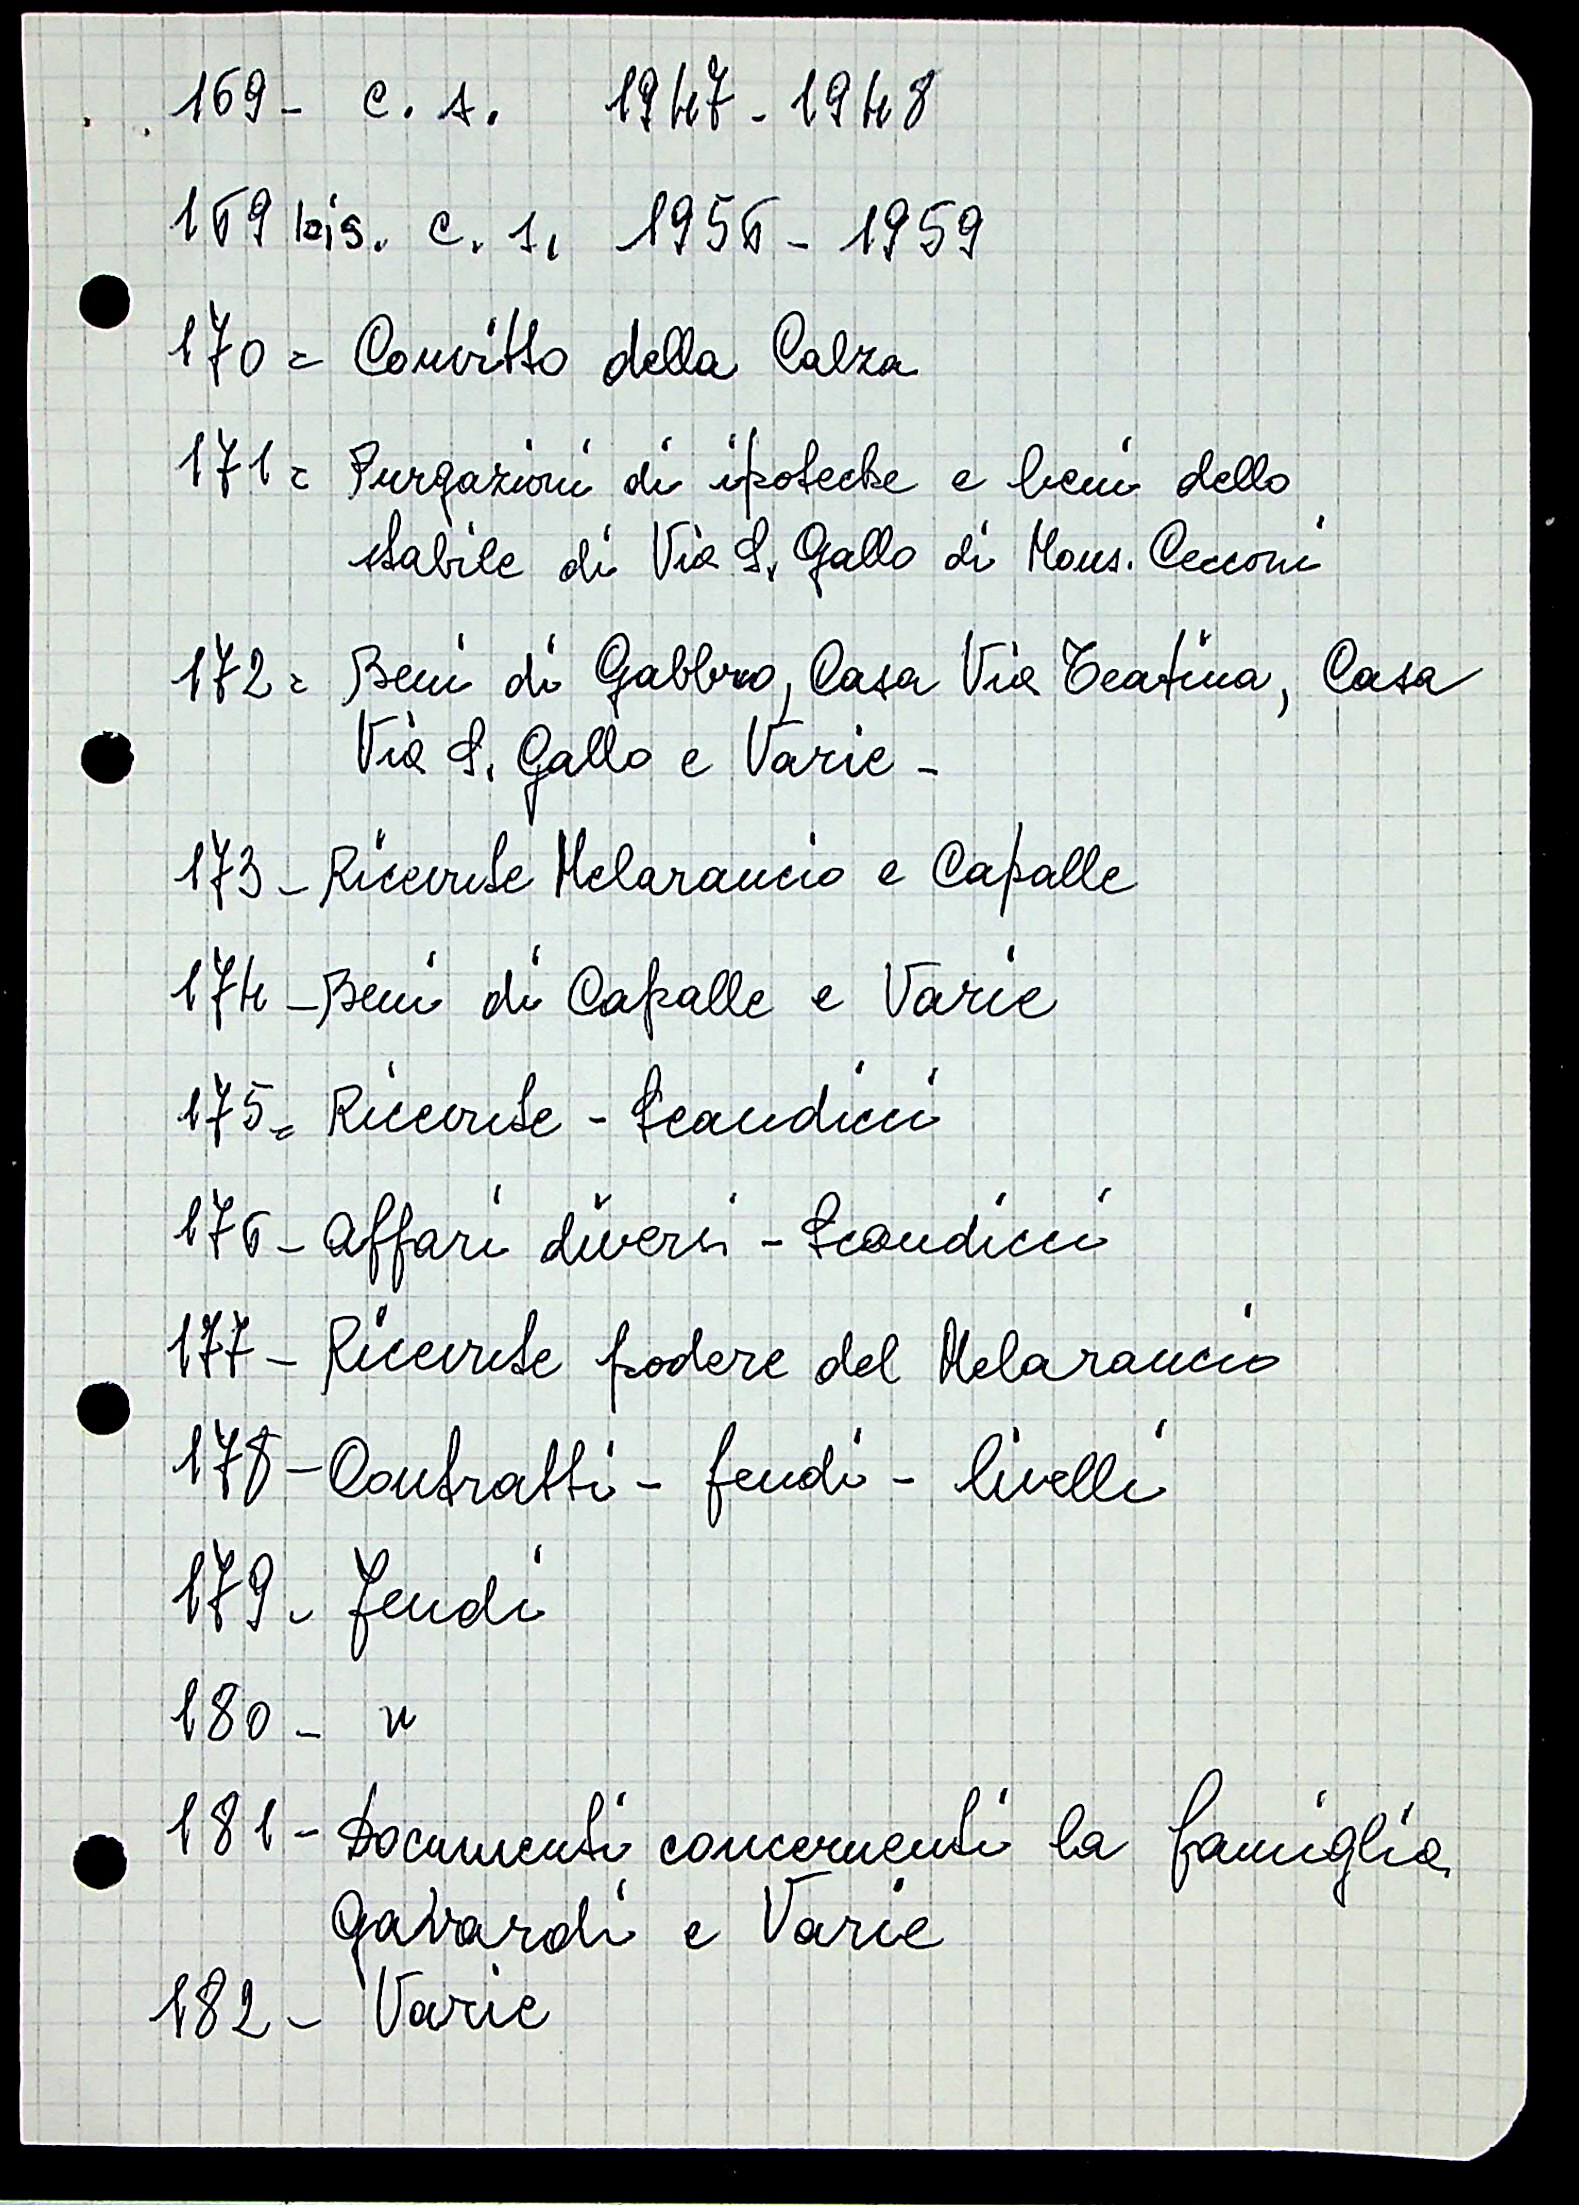 169- c. s. 1947 - 1948
169 bis. c. s. 1956 - 1959
170 = Convitto della Calza
171 = Purgazioni di ipoteche e beni dello
stabile di Via S. Gallo di Mons. Cecconi
172 = Beni di Gabbro, Casa Via Teatina, Casa
Via S. Gallo e Varie -
173 - Ricevute Melarancio e Capalle
174 - Beni di Capalle e Varie
175 = Ricevute - Scandicci
176 - Affari diversi - Scandicci
177 - Ricevute podere del Melarancio
178 - Contratti - feudi - livelli
179 - Feudi
180 - "
181 - Documenti concernenti la famiglia
Gavardi e Varie
182 - Varie